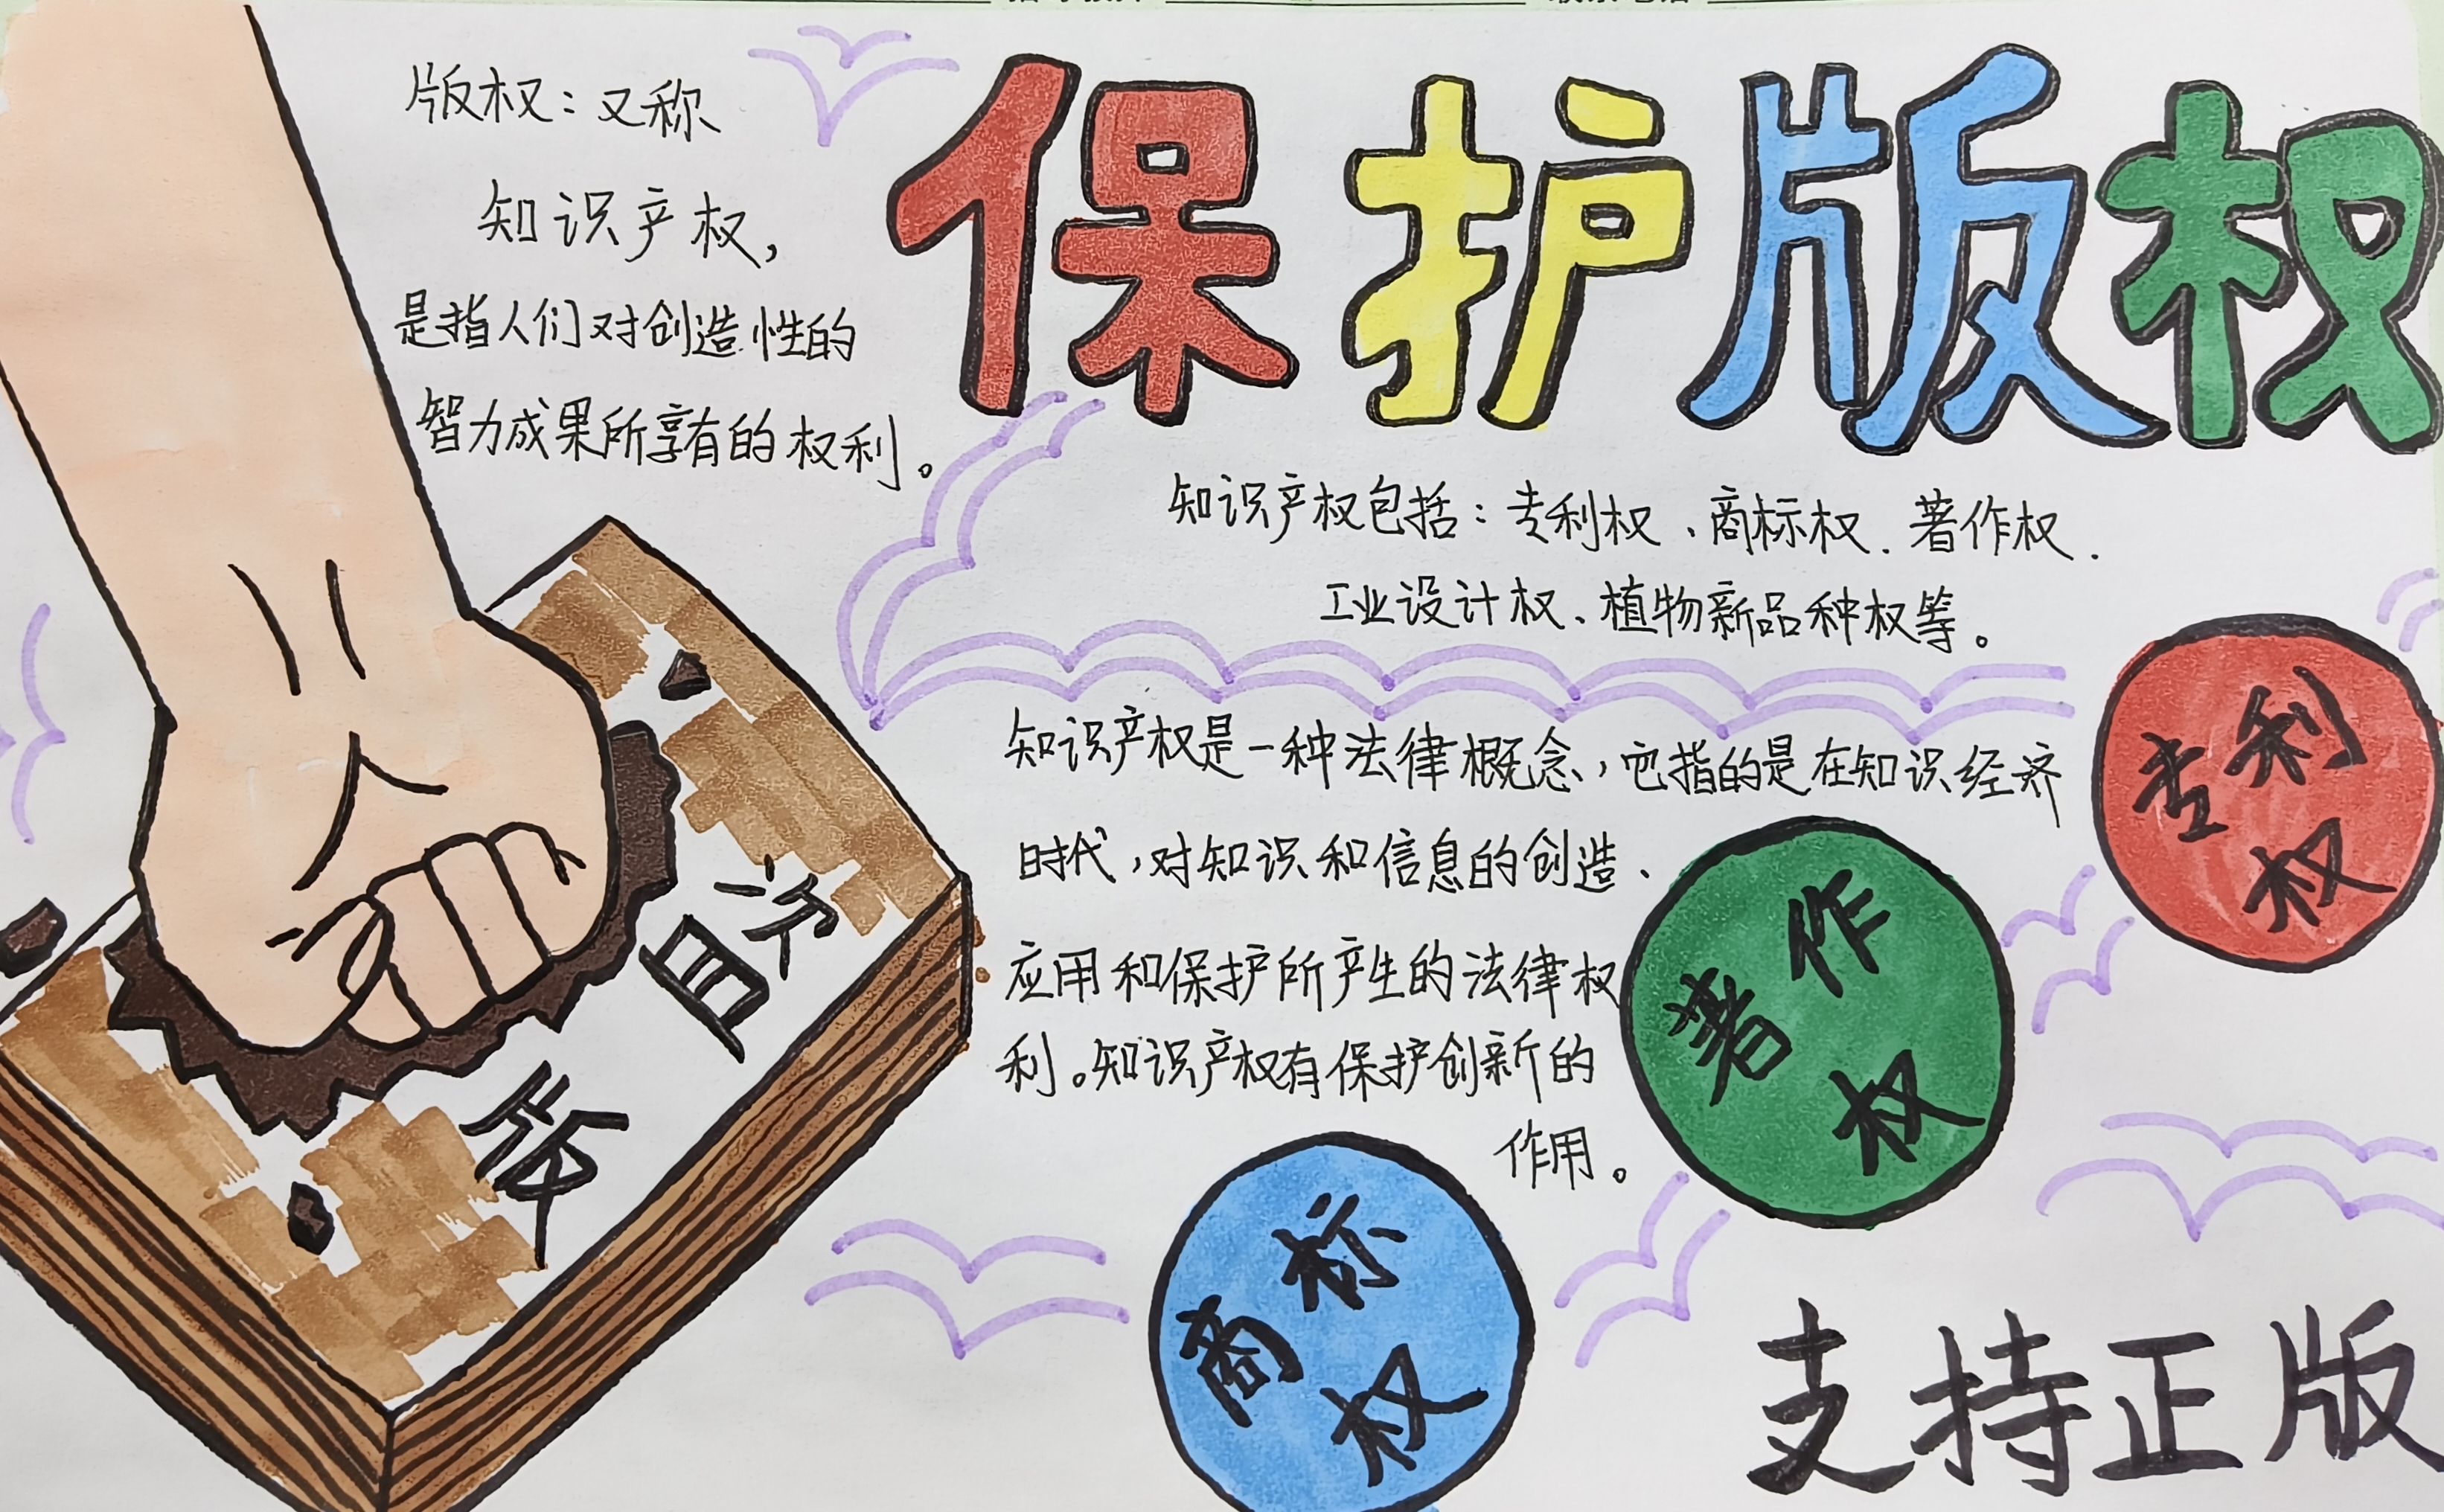 保护版权
版权：又称
知识产权，
是指人们对创造性的
智力成果所享有的权利。
知识产权包括：专利权、商标权、著作权、
工业设计权、植物新品种权等。
知识产权是一种法律概念，它指的是在知识经济
时代，对知识和信息的创造、
应用和保护所产生的法律权
利。知识产权有保护创新的
作用。
专利权
著作权
商标权
盗版
支持正版